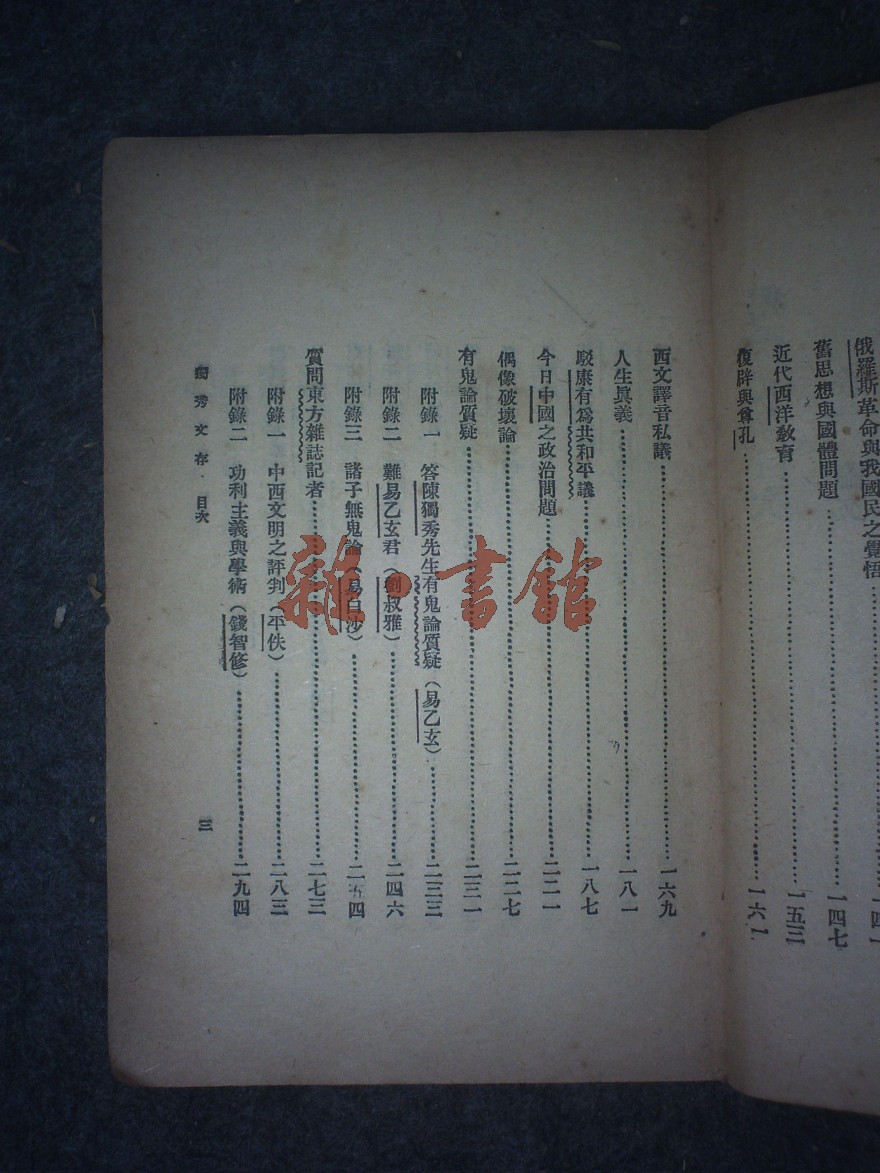 俄羅斯革命與我國民之覺悟……一四一
舊思想與國體問題……一四七
近代西洋敎育……一五三
復辟與尊孔……一六一
西文譯音私議……一六九
人生眞義……一八一
駁康有爲共和平議……一八七
今日中國之政治問題……二二一
偶像破壞論……二二七
有鬼論質疑……二三一
附錄一 答陳獨秀先生有鬼論質疑(易乙玄)……二三三
附錄二 難易乙玄君(劉叔雅)……二四六
附錄三 諸子無鬼論(易白沙)……二五四
質問東方雜誌記者……二七三
附錄一 中西文明之評判(平佚)……二八三
附錄二 功利主義與學術(錢智修)……二九四
獨秀文存·目次
三
雜·書館